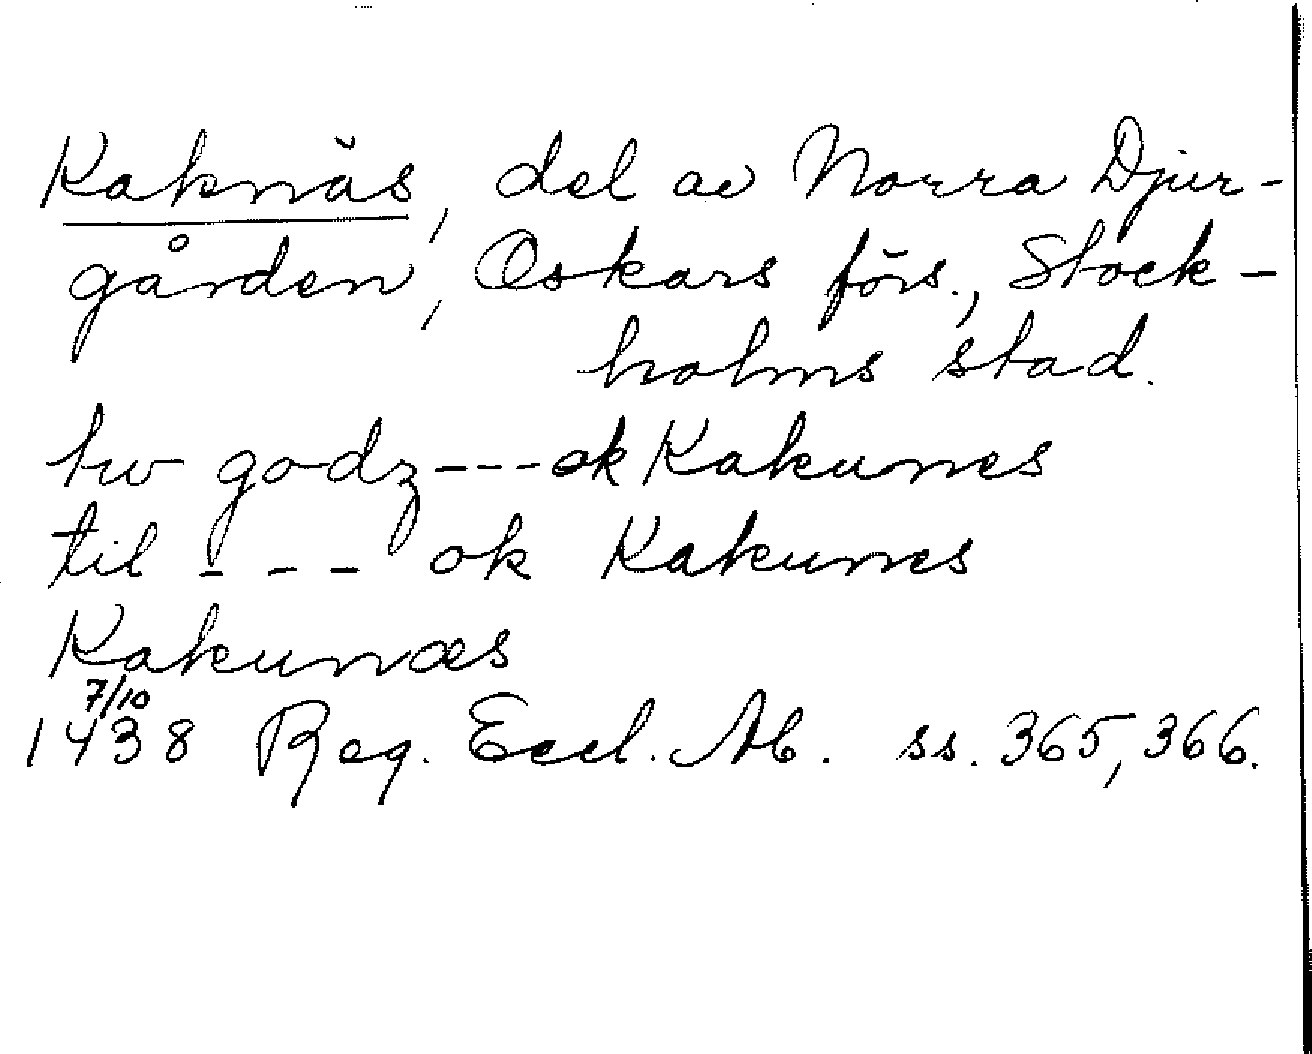 Kaknäs, del av Norra Djur-
gården, Oskars förs., Stock-
holms stad.
tw godz --- ok Kakunes
til --- ok Kakunes
Kakunæs
7/10
1438 Reg. Eccl. Ab. ss. 365, 366.